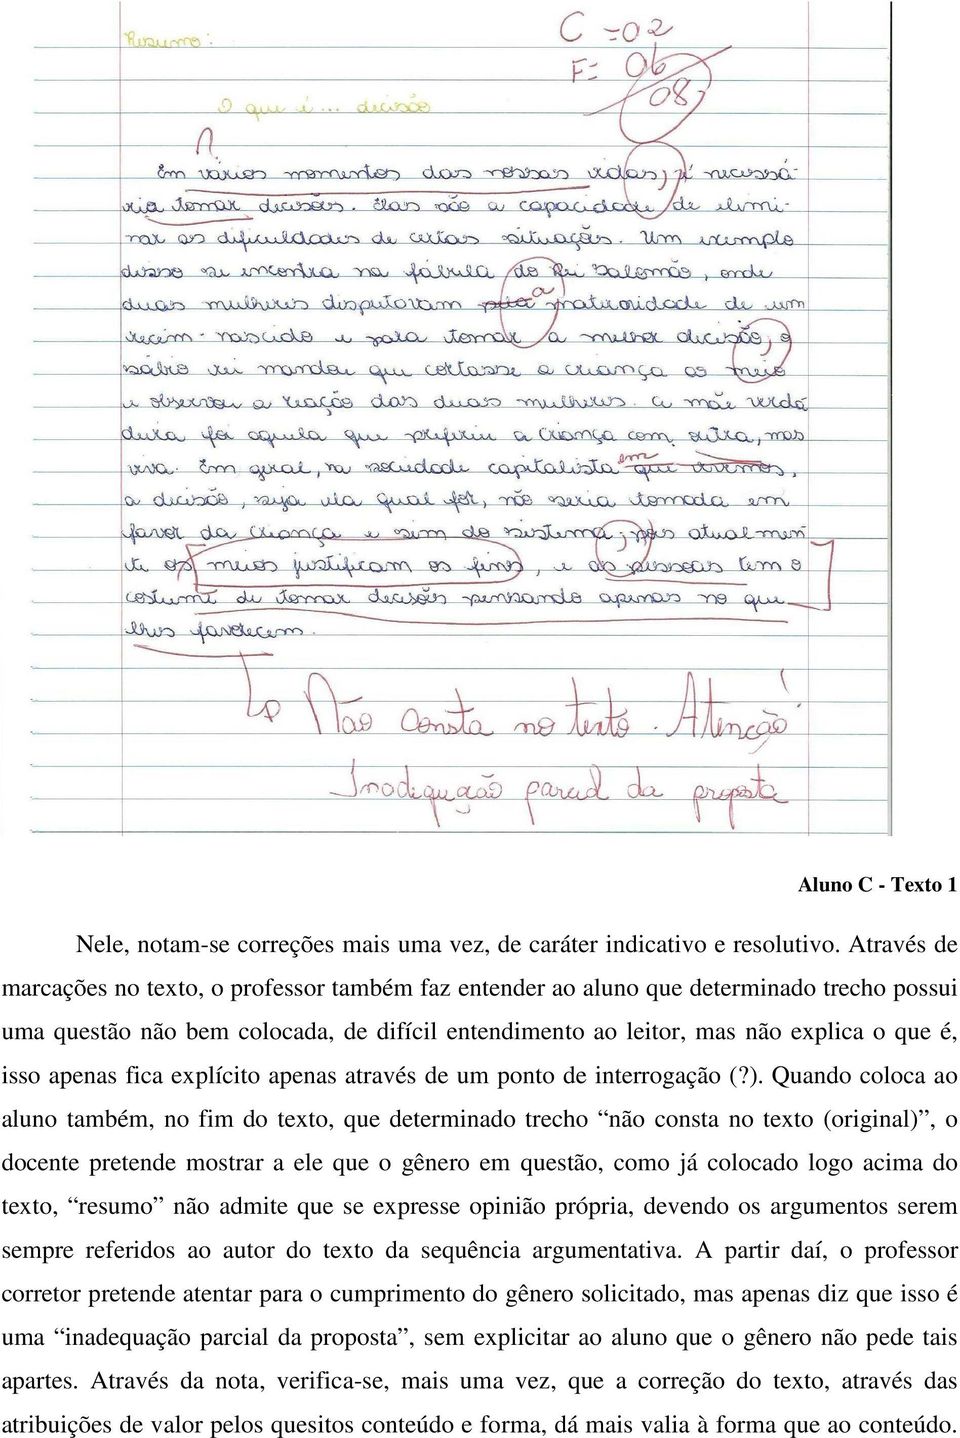 Resumo:
C = 02
F = 06
08,
O que é... decisão
?
Em vários momentos das nossas vidas, é necessá-
ria tomar decisões. Elas são a capacidade de elimi-
nar as dificuldades de certas situações. Um exemplo
disso se encontra na fábula do Rei Salomão, onde
duas mulheres disputavam pela a maturidade de um
recém-nascido e para tomar a melhor decisão, o
sábio rei mandou que cortasse a criança ao meio
e observou a reação das duas mulheres. A mãe verda
deira foi aquela que preferiu a criança com outra, mas
viva. Em geral, na sociedade capitalista em que vivemos,
a decisão, seja ela qual for, não seria tomada em
favor da criança e sim do sistema, pois atualmen
te os meios justificam os fins, e as pessoas tem o
costume de tomar decisões pensando apenas no que
lhes favorecem.
Não consta no texto. Atenção!
Inadequação parcial da proposta
Aluno C - Texto 1
Nele, notam-se correções mais uma vez, de caráter indicativo e resolutivo. Através de
marcações no texto, o professor também faz entender ao aluno que determinado trecho possui
uma questão não bem colocada, de difícil entendimento ao leitor, mas não explica o que é,
isso apenas fica explícito apenas através de um ponto de interrogação (?). Quando coloca ao
aluno também, no fim do texto, que determinado trecho “não consta no texto (original)”, o
docente pretende mostrar a ele que o gênero em questão, como já colocado logo acima do
texto, “resumo” não admite que se expresse opinião própria, devendo os argumentos serem
sempre referidos ao autor do texto da sequência argumentativa. A partir daí, o professor
corretor pretende atentar para o cumprimento do gênero solicitado, mas apenas diz que isso é
uma “inadequação parcial da proposta”, sem explicitar ao aluno que o gênero não pede tais
apartes. Através da nota, verifica-se, mais uma vez, que a correção do texto, através das
atribuições de valor pelos quesitos conteúdo e forma, dá mais valia à forma que ao conteúdo.